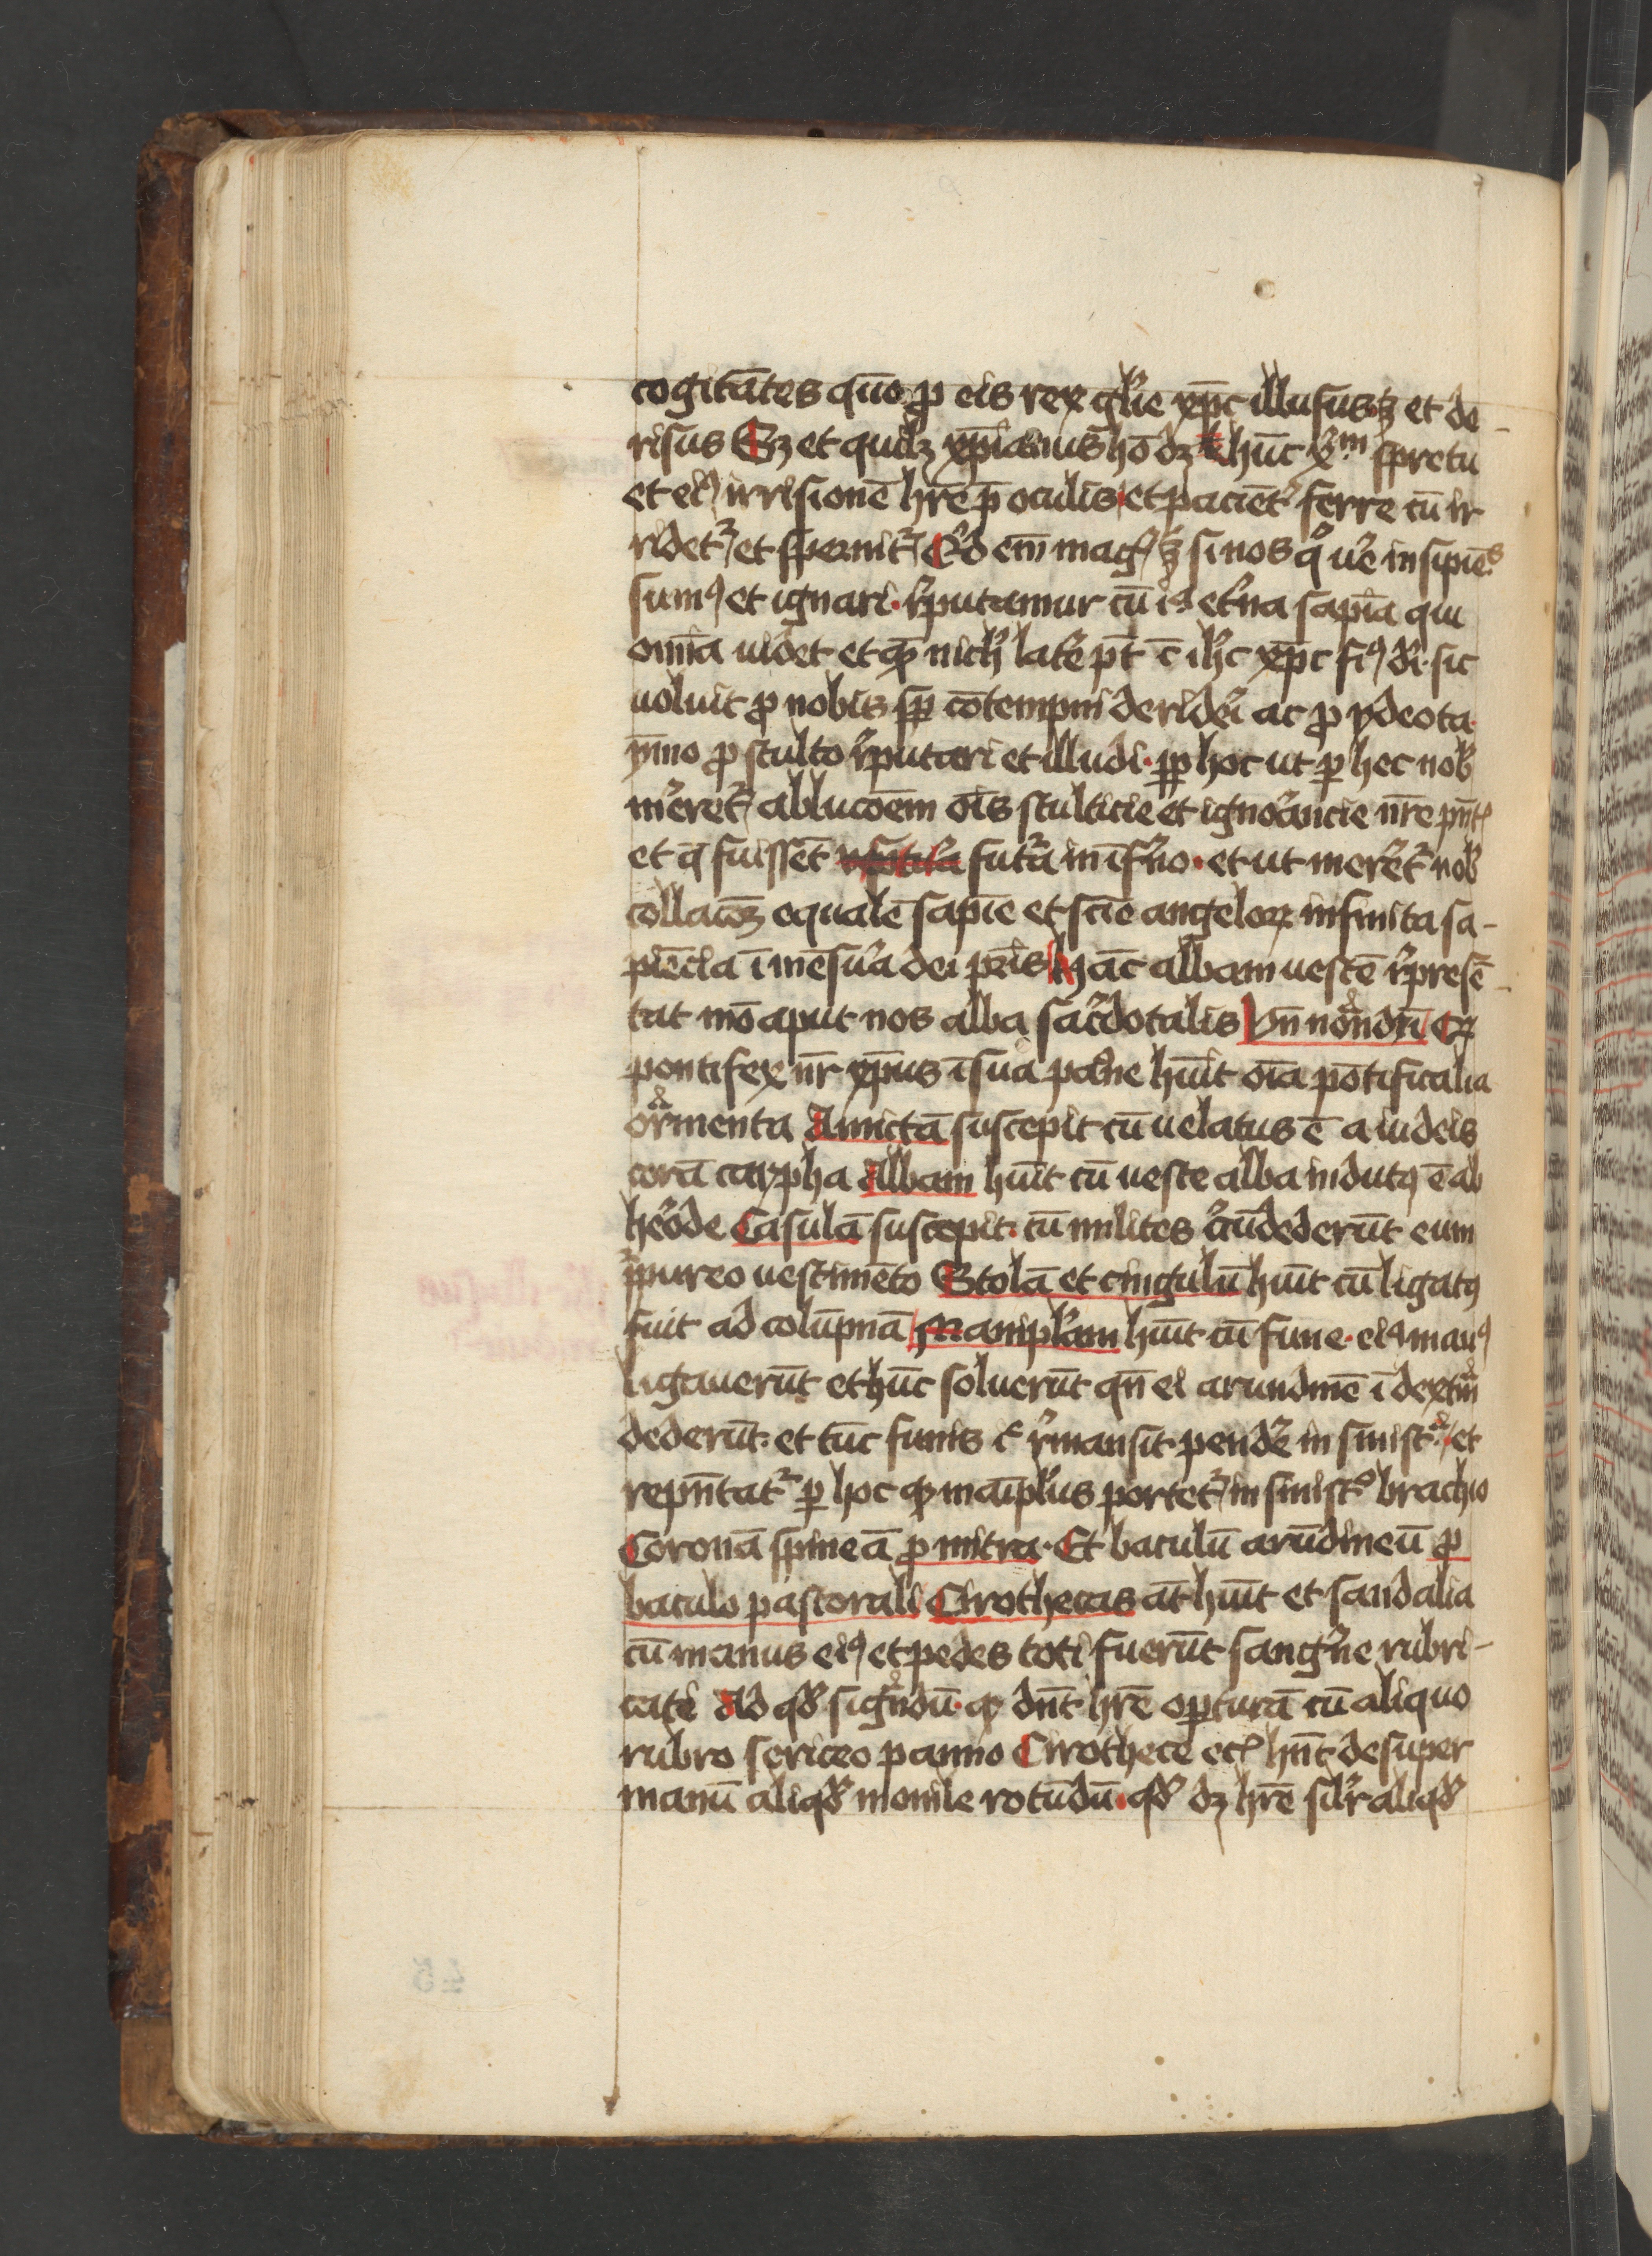 cogitātes quō ꝓ eis rex gl̄ie xp̄c illusus ē et de-
risus Sꝫ et quilꝫ xp̄ianus hō dꝫ hūc xᵐ spretū
et eiꝰ irrisionē hr̄e p̄ oculis et pacient̄ ferre cū ir
ridet̄ et spernit̄ Qd em̄ mag ē si nos q ue insipiēs
sumꝰ et ignari · r̄putamur cū ia et̄na sapīa qui
om̄ia uidet et qꝫ nich latē pt̄ ē ih̄c xp̄c fiꝰ di · sic
uoluit ꝓ nobis sp̄ cōtempni deridēi ac ꝓ ydeota
ymo ꝓ stulto r̄putari et illudi · ꝓp̄ hoc ut ꝑ hec nob
m̄eret̄ abluc̄oem ois stulticie et ignorancie nr̄e pn̄t
et q̄ fuissēt futa in īfno · et ut meret̄ nob
collacōꝫ equalē sapīe et scīe angeloꝝ infinita sa-
piēcia īmēsua dei pris hāc albam uestē r̄presē-
tat mō aput nos alba sacdotalis Vn̄ nōndn̄ Qꝫ
pontifex nr̄ xp̄us ī sua passiōe hūit oīa pōtificalia
ornamenta Amictā suscepit cū uelatus ē a iudeis
corā cayꝑha Albam hūit cū ueste alba indutꝰ ē ab
heōde Casulā suscepit · cū milites ccūdederūt eum
p̄pureo uestimēto Stolā et cingulū hūit cū ligatꝰ
fuit ad colūpnā Maniplam hūit cū fune · eiꝰ manꝰ
ligauerūt et hūc soluerūt qn̄ ei arundinē ī dextra
dederūt · et tūc funis r̄mansit pendē in sinistra et
repn̄tat̄ ꝑ hoc qꝫ maīplus portet̄ in sinistᵒ brachio
Coronā spineā ꝓ mitra · Et baculū arūdineū ꝓ
baculo pastorali Cirothecas āt hūit et sandalia
cū manus eiꝰ et pedes toti fuerūt sangne rubri-
cati Ad qd signandū · qꝫ dn̄t hr̄e opturā cū aliquo
rubro sericeo panno Cirothece ec hn̄t desuper
manū aliqd monile rotūdū · qd dꝫ hr̄e silr aliqd